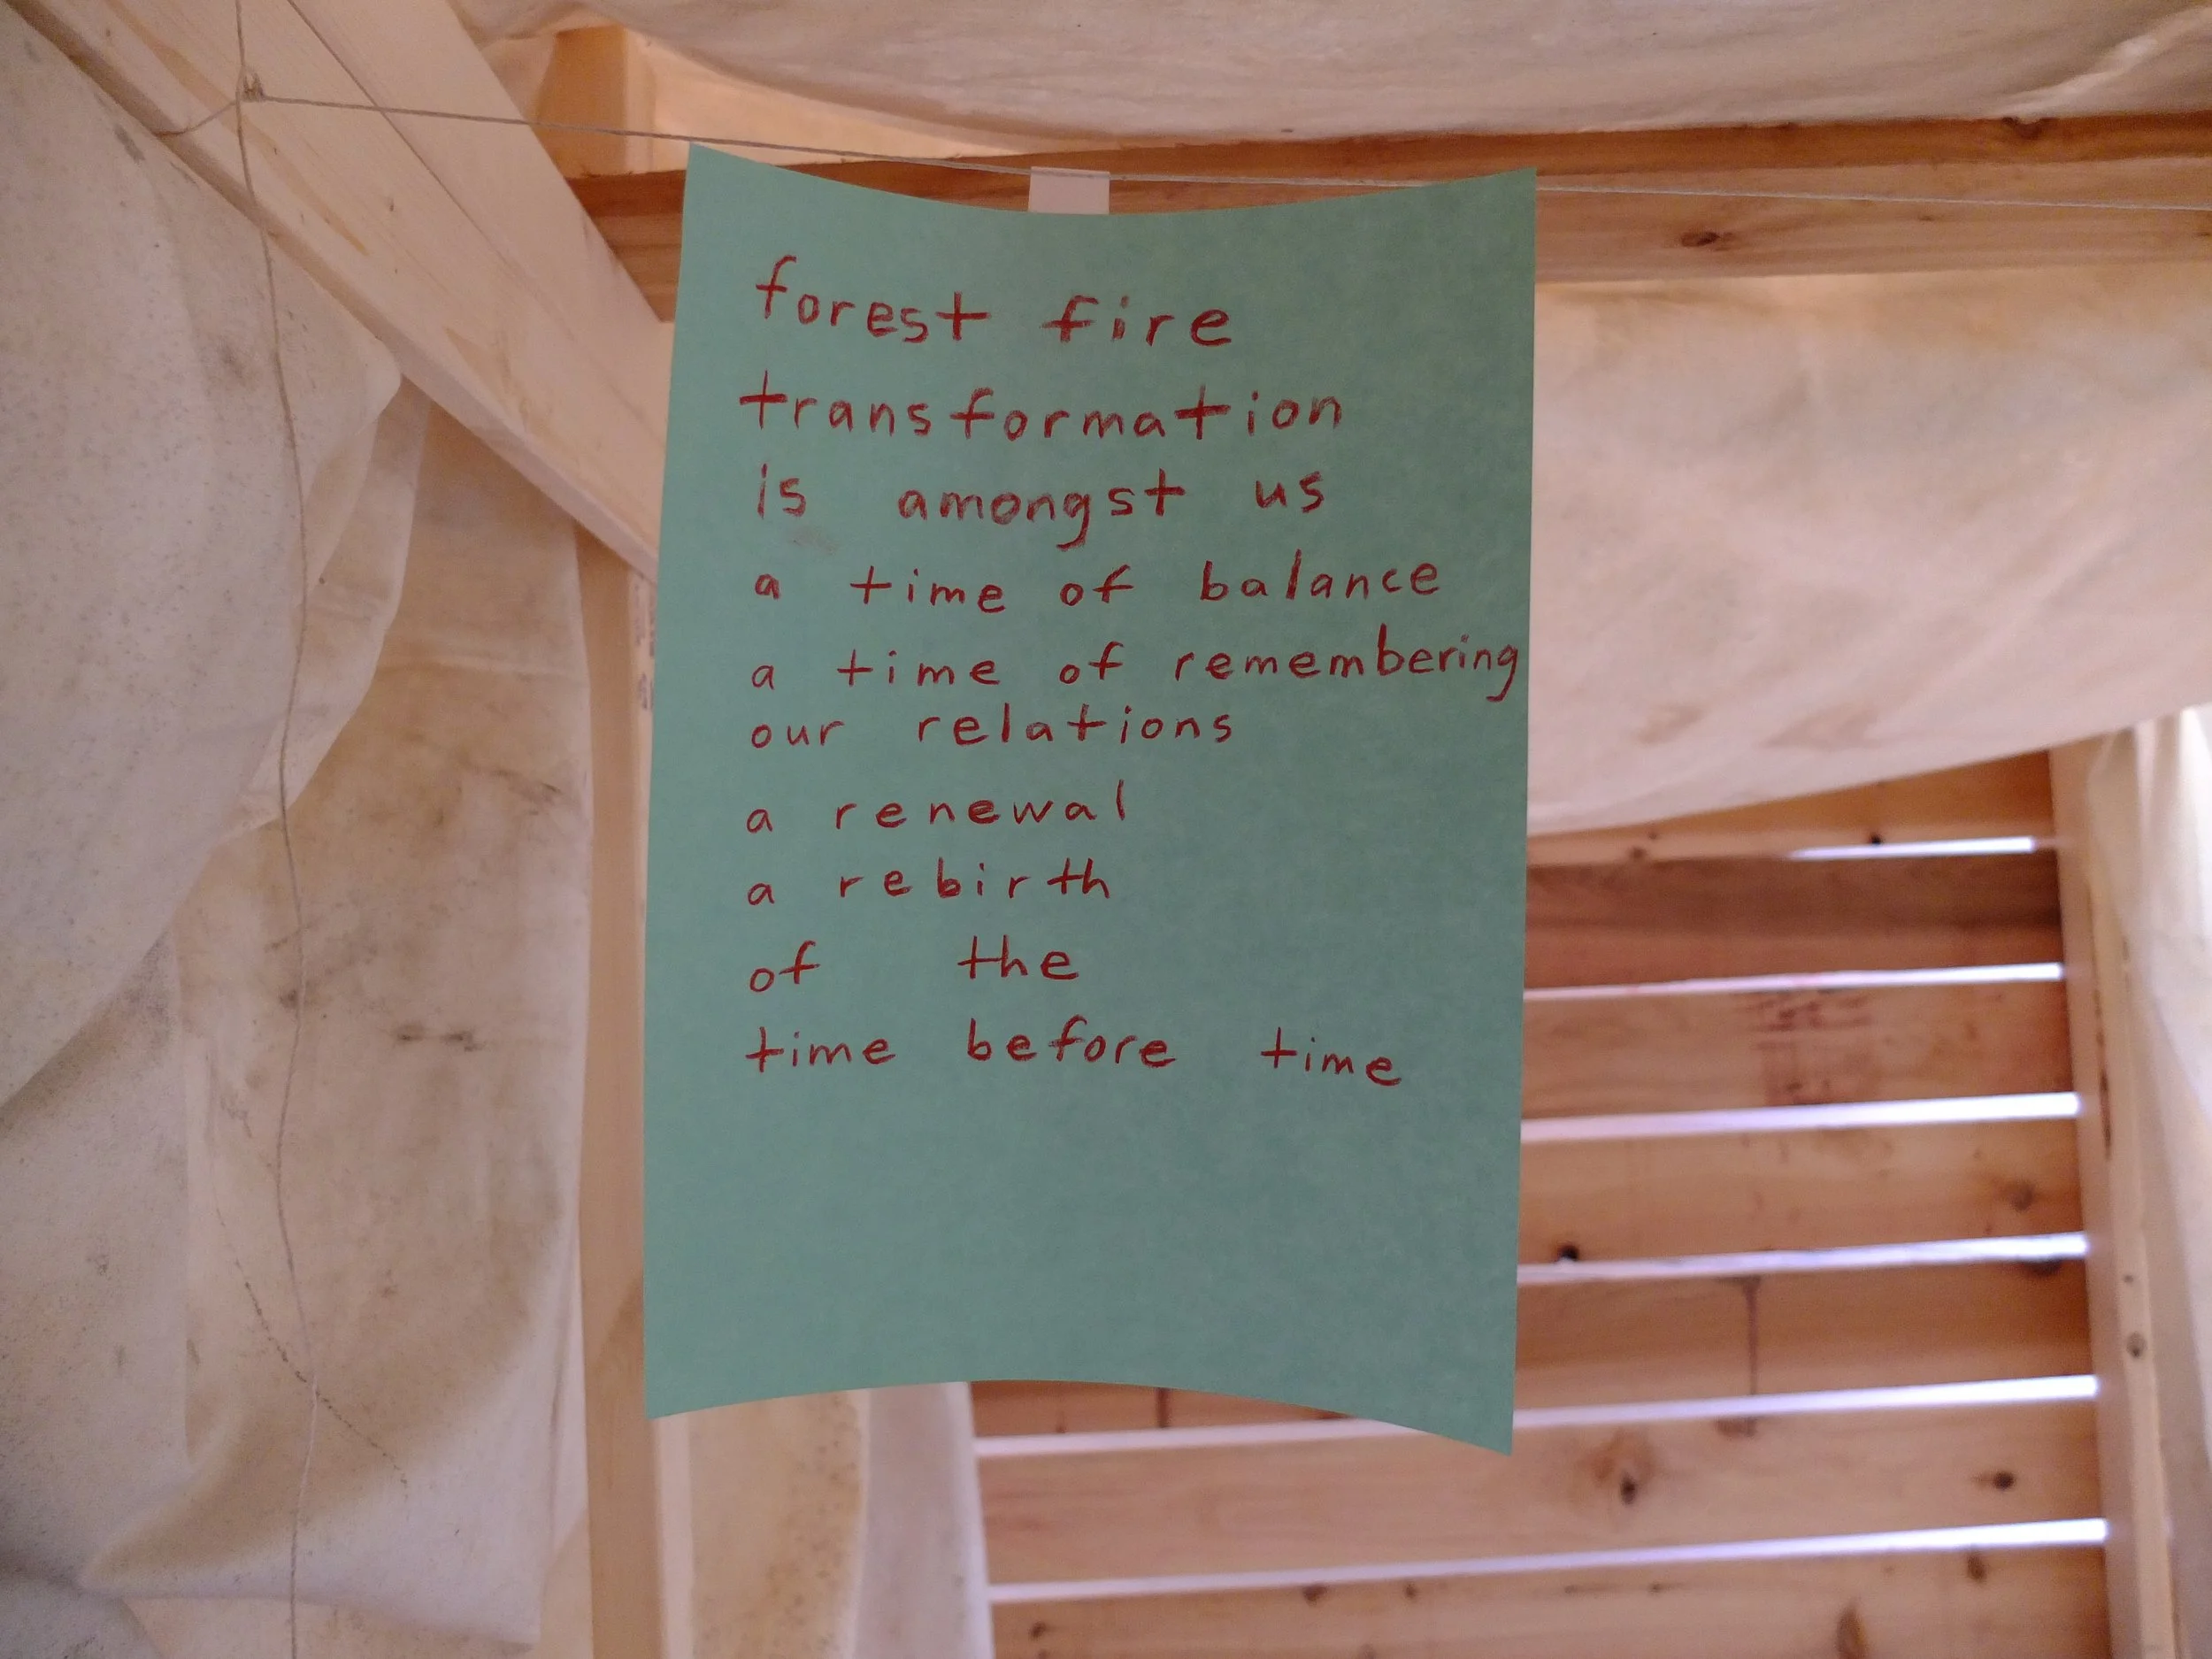 forest fire
transformation
is amongst us
a time of balance
a time of remembering
our relations
a renewal
a rebirth
of the
time before time